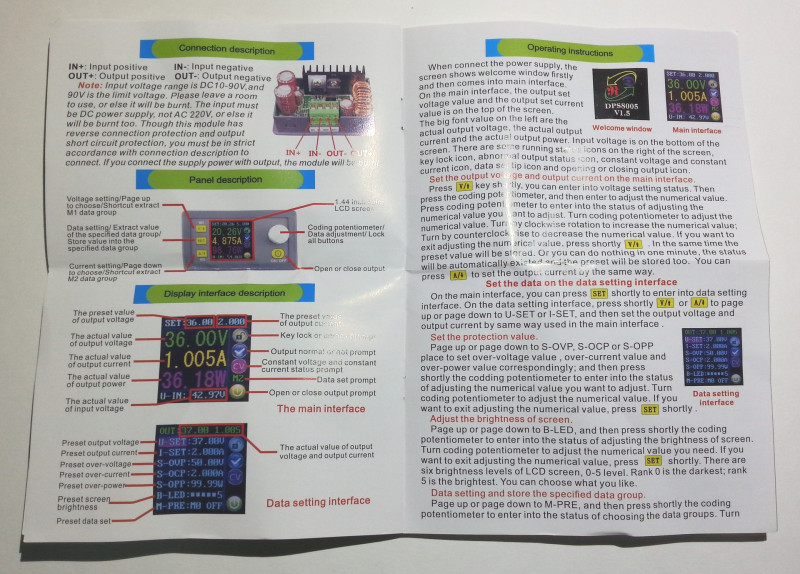 Connection description
IN+: Input positive IN-: Input negative
OUT+: Output positive OUT-: Output negative
Note: Input voltage range is DC10-90V,and
90V is the limit voltage. Please leave a room
to use, or else it will be burnt. The input must
be DC power supply, not AC 220V, or else it
will be burnt too. Though this module has
reverse connection protection and output
short circuit protection, you must be in strict
accordance with connection description to
connect. If you connect the supply power with output, the module will be
IN+ IN- OUT- OUT+
Panel description
Voltage setting/Page up
to choose/Shortcut extract
M1 data group
Data setting/ Extract value
of the specified data group/
Store value into the
specified data group
Current setting/Page down
to choose/Shortcut extract
M2 data group
20.26V
4.875A
ON/OFF
1.44 inch
LCD screen
Coding potentiometer/
Data adjustment/ Lock
all buttons
Open or close output
Display interface description
The preset value
of output voltage
The actual value
of output voltage
The actual value
of output current
The actual value
of output power
The actual value
of input voltage
SET:36.00 2.000
36.00V
1.005A
36.18W
U-IN: 42.97V
CV
M2
The preset value
of output
Key lock or
Output normal or not prompt
Constant voltage and constant
current status prompt
Data set prompt
Open or close output prompt
The main interface
Preset output voltage
Preset output current
Preset over-voltage
Preset over-current
Preset over-power
Preset screen
brightness
Preset data set
OUT:37.00 1.005
U-SET:37.00V
I-SET:2.000A
S-OVP:50.00V
S-OCP:2.000A
S-OPP:99.99W
B-LED:*****5
M-PRE:M0 OFF
CV
The actual value of output
voltage and output current
Data setting interface
Operating instructions
When connect the power supply, the
screen shows welcome window firstly
and then comes into main interface.
On the main interface, the output set
voltage value and the output set current
value is on the top of the screen.
The big font value on the left are the
actual output voltage, the actual output
current and the actual output power. Input voltage is on the bottom of the
screen. There are some running icons on the right of the screen,
key lock icon, abnormal output status icon, constant voltage and constant
current icon, data set tip icon and opening or closing output icon.
DPS8005
V1.5
Welcome window
SET:36.00 2.000
36.00V
1.005A
36.18W
U-IN: 42.97V
Main interface
Set the output voltage and output current on the main interface.
Press V/⇧ key shortly, you can enter into voltage setting status. Then
press the coding potentiometer, and then enter to adjust the numerical value.
Press coding potentiometer to enter into the status of adjusting the
numerical value you want to adjust. Turn coding potentiometer to adjust the
numerical value. Turn by clockwise rotation to increase the numerical value;
Turn by counterclockwise to decrease the numerical value. If you want to
exit adjusting the numerical value, press shortly V/⇧ . In the same time the
preset value will be stored. Or you can do nothing in one minute, the status
will be automatically existed and the preset will be stored too. You can
press A/⇩ to set the output current by the same way.
Set the data on the data setting interface
On the main interface, you can press SET shortly to enter into data setting
interface. On the data setting interface, press shortly V/⇧ or A/⇩ to page
up or page down to U-SET or I-SET, and then set the output voltage and
output current by same way used in the main interface .
Set the protection value.
Page up or page down to S-OVP, S-OCP or S-OPP
place to set over-voltage value , over-current value and
over-power value correspondingly; and then press
shortly the codding potentiometer to enter into the status
of adjusting the numerical value you want to adjust. Turn
coding potentiometer to adjust the numerical value. If you
want to exit adjusting the numerical value, press SET shortly .
OUT:37.00 1.005
U-SET:37.00V
I-SET:2.000A
S-OVP:50.00V
S-OCP:2.000A
S-OPP:99.99W
B-LED:*****5
M-PRE:M0 OFF
Data setting
interface
Adjust the brightness of screen.
Page up or page down to B-LED, and then press shortly the coding
potentiometer to enter into the status of adjusting the brightness of screen.
Turn coding potentiometer to adjust the numerical value you need. If you
want to exit adjusting the numerical value, press SET shortly. There are
six brightness levels of LCD screen, 0-5 level. Rank 0 is the darkest; rank
5 is the brightest. You can choose what you like.
Data setting and store the specified data group.
Page up or page down to M-PRE, and then press shortly the coding
potentiometer to enter into the status of choosing the data groups. Turn